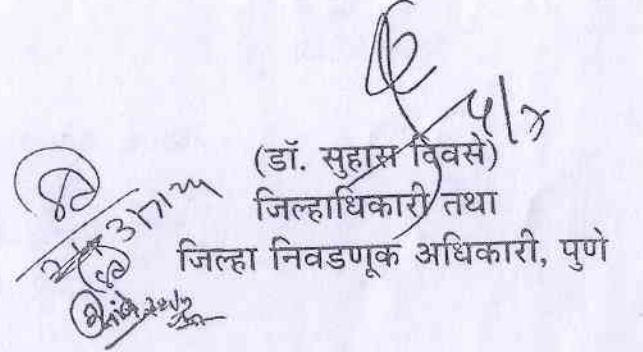 ५/४
(डॉ. सुहास दिवसे)
जिल्हाधिकारी तथा
जिल्हा निवडणूक अधिकारी, पुणे